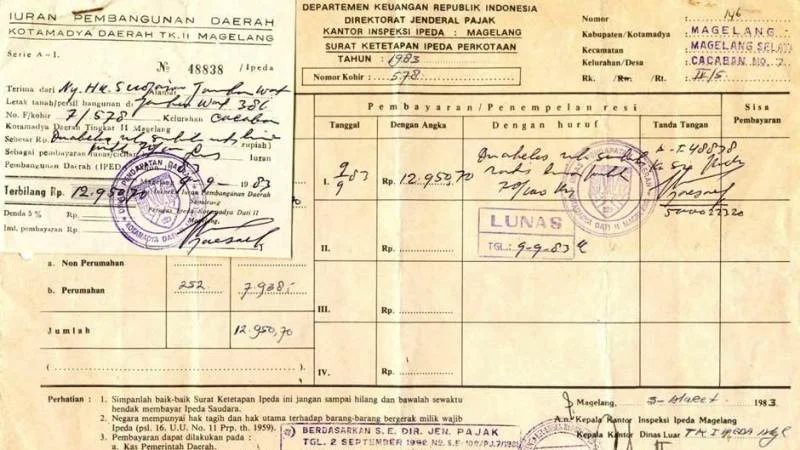 IURAN PEMBANGUNAN DAERAH
KOTAMADYA DAERAH TK.II MAGELANG
Serie A-I.
№ 48838 / Ipeda
Terima dari Ny. Hk.
Letak tanah/persil bangunan di 386
No. F/kohir 7/578 Kelurahan Cacaban
Kotamadya Daerah Tingkat II Magelang
Sebesar Rp. rupiah)
Sebagai pembayaran Iuran
Pembangunan Daerah (IPEDA
Magelang 9-9-1983
Iuran Pembangunan Daerah
Semarang
Ipeda Kotamadya Dati II
Magelang,
Terbilang Rp. 12.950,70
Denda 5 % Rp.
Jml. pembayaran Rp.
DINAS PENDAPATAN DAERAH
KOTAMADYA DATI II
DEPARTEMEN KEUANGAN REPUBLIK INDONESIA
DIREKTORAT JENDERAL PAJAK
KANTOR INSPEKSI IPEDA : MAGELANG
SURAT KETETAPAN IPEDA PERKOTAAN
TAHUN : 1983
Nomor Kohir : 578
Nomor : 146
Kabupaten/Kotamadya : MAGELANG
Kecamatan : MAGELANG SELATAN
Kelurahan/Desa : CACABAN NO. 7
Rk. / Rw. / Rt. : II/5
Pembayaran/Penempelan resi
Sisa Pembayaran
Tanggal
Dengan Angka
Dengan huruf
Tanda Tangan
I. 9/9 83 Rp. 12.950,70
70/100
A-I.48838
LUNAS
TGL: 9-9-83
II. Rp.
III. Rp.
IV. Rp.
a. Non Perumahan
b. Perumahan 252
Jumlah 12.950,70
Perhatian : 1. Simpanlah baik-baik Surat Ketetapan Ipeda ini jangan sampai hilang dan bawalah sewaktu
hendak membayar Ipeda Saudara.
2. Negara mempunyai hak tagih dan hak utama terhadap barang-barang bergerak milik wajib
Ipeda (psl. 16. U.U. No. 11 Prp. th. 1959).
3. Pembayaran dapat dilakukan pada :
a. Kas Pemerintah Daerah
BERDASARKAN S.E. DIR. JEN. PAJAK
Magelang, 3-Maret 1983
A.n. Kepala Kantor Inspeksi Ipeda Magelang
Kepala Kantor Dinas Luar TK I IPEDA